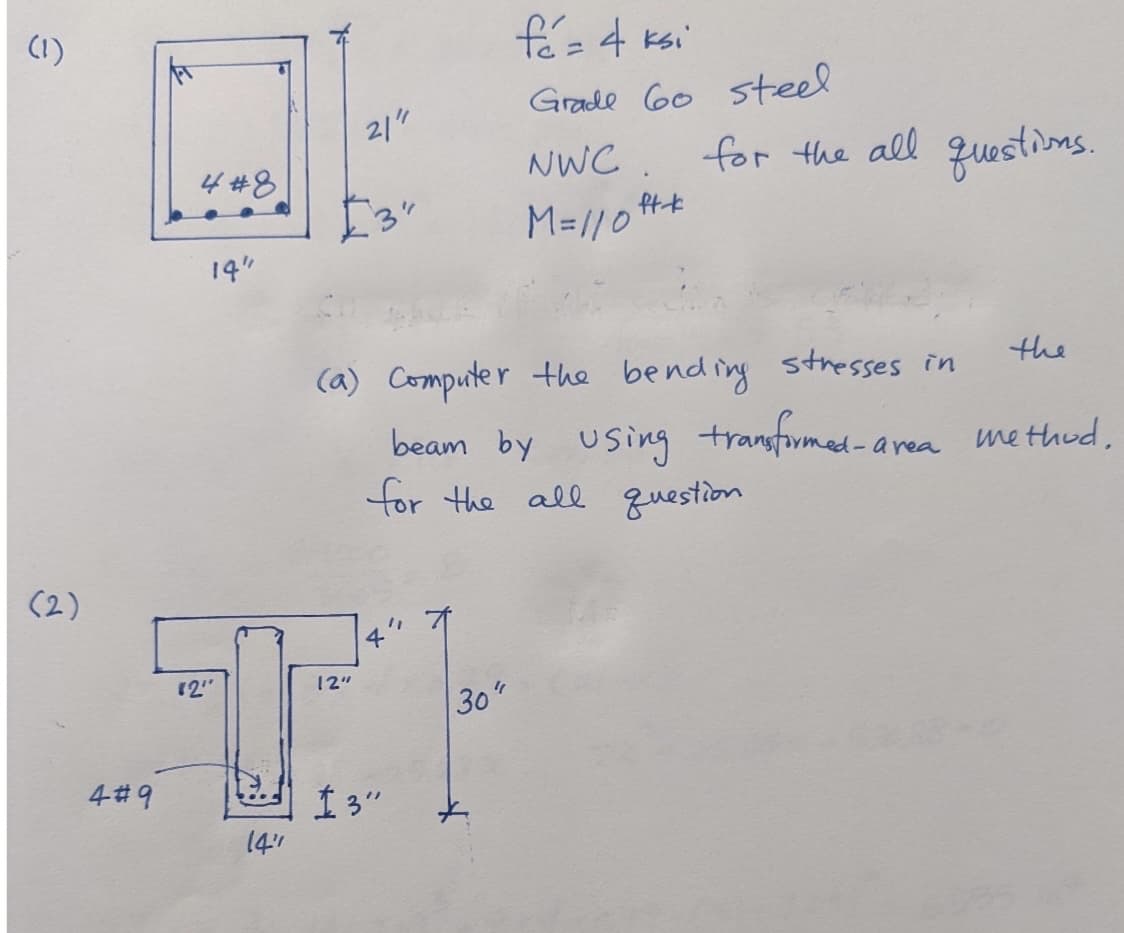 (1)
fc' = 4 ksi
Grade 60 steel
21"
NWC. for the all questions.
4 #8
3"
M=110 ft-k
14"
(a) Computer the bending stresses in the
beam by using transformed-area method.
for the all question
(2)
4"
12" 12"
30"
4#9
3"
14"